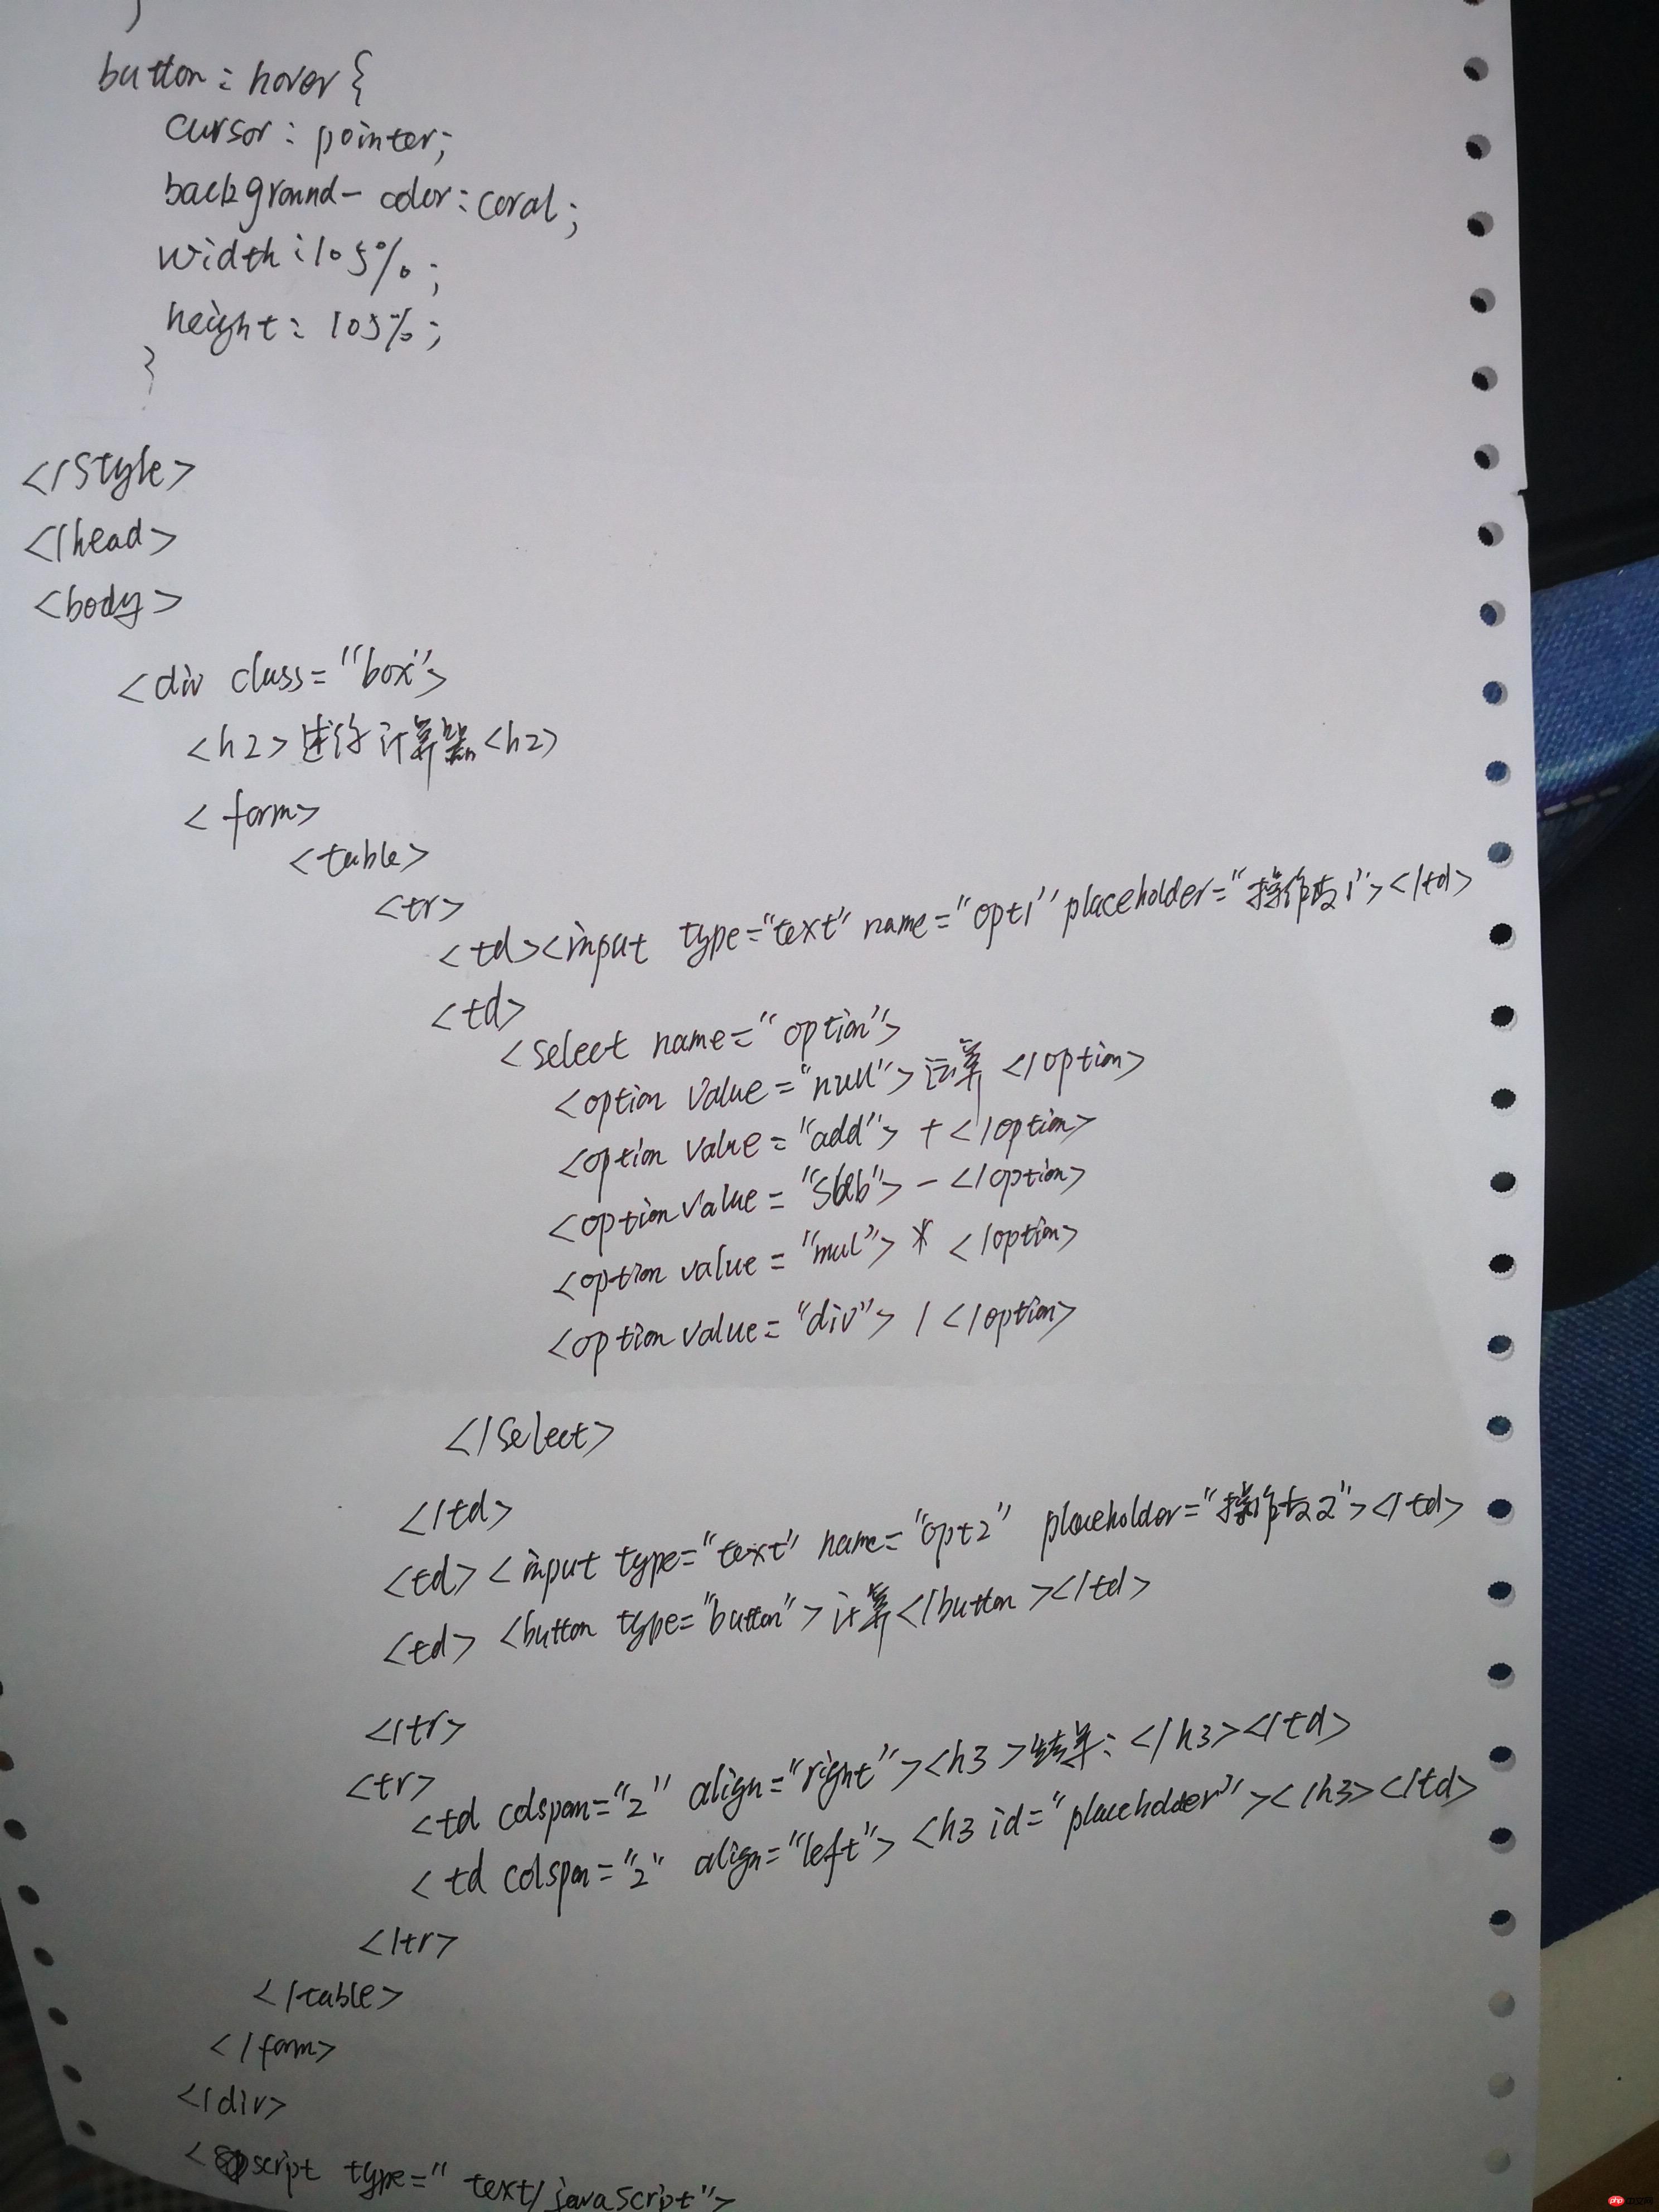 }
button:hover{
cursor: pointer;
background-color:coral;
width:105%;
height: 105%;
}
</style>
</head>
<body>
<div class="box">
<h2>迷你计算器<h2>
<form>
<table>
<tr>
<td><input type="text" name="opt1" placeholder="操作数1"></td>
<td>
<select name="option">
<option value="null">计算</option>
<option value="add">+</option>
<option value=>-</option>
<option value="mul">*</option>
<option value="div">/</option>
</select>
</td>
<td><input type="text" name="opt2" placeholder="操作数2"></td>
<td><button type="button">计算</button></td>
</tr>
<tr>
<td colspan="2" align="right"><h3>结果:</h3></td>
<td colspan="2" align="left"><h3 id="placeholder"></h3></td>
</tr>
</table>
</form>
</div>
<script type="text/javascript">
php